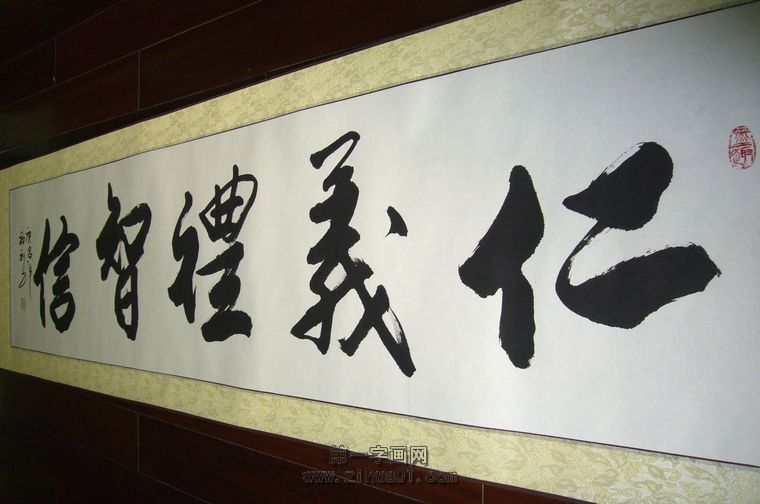 仁義禮智信
第一字画网
www.zihua01.com